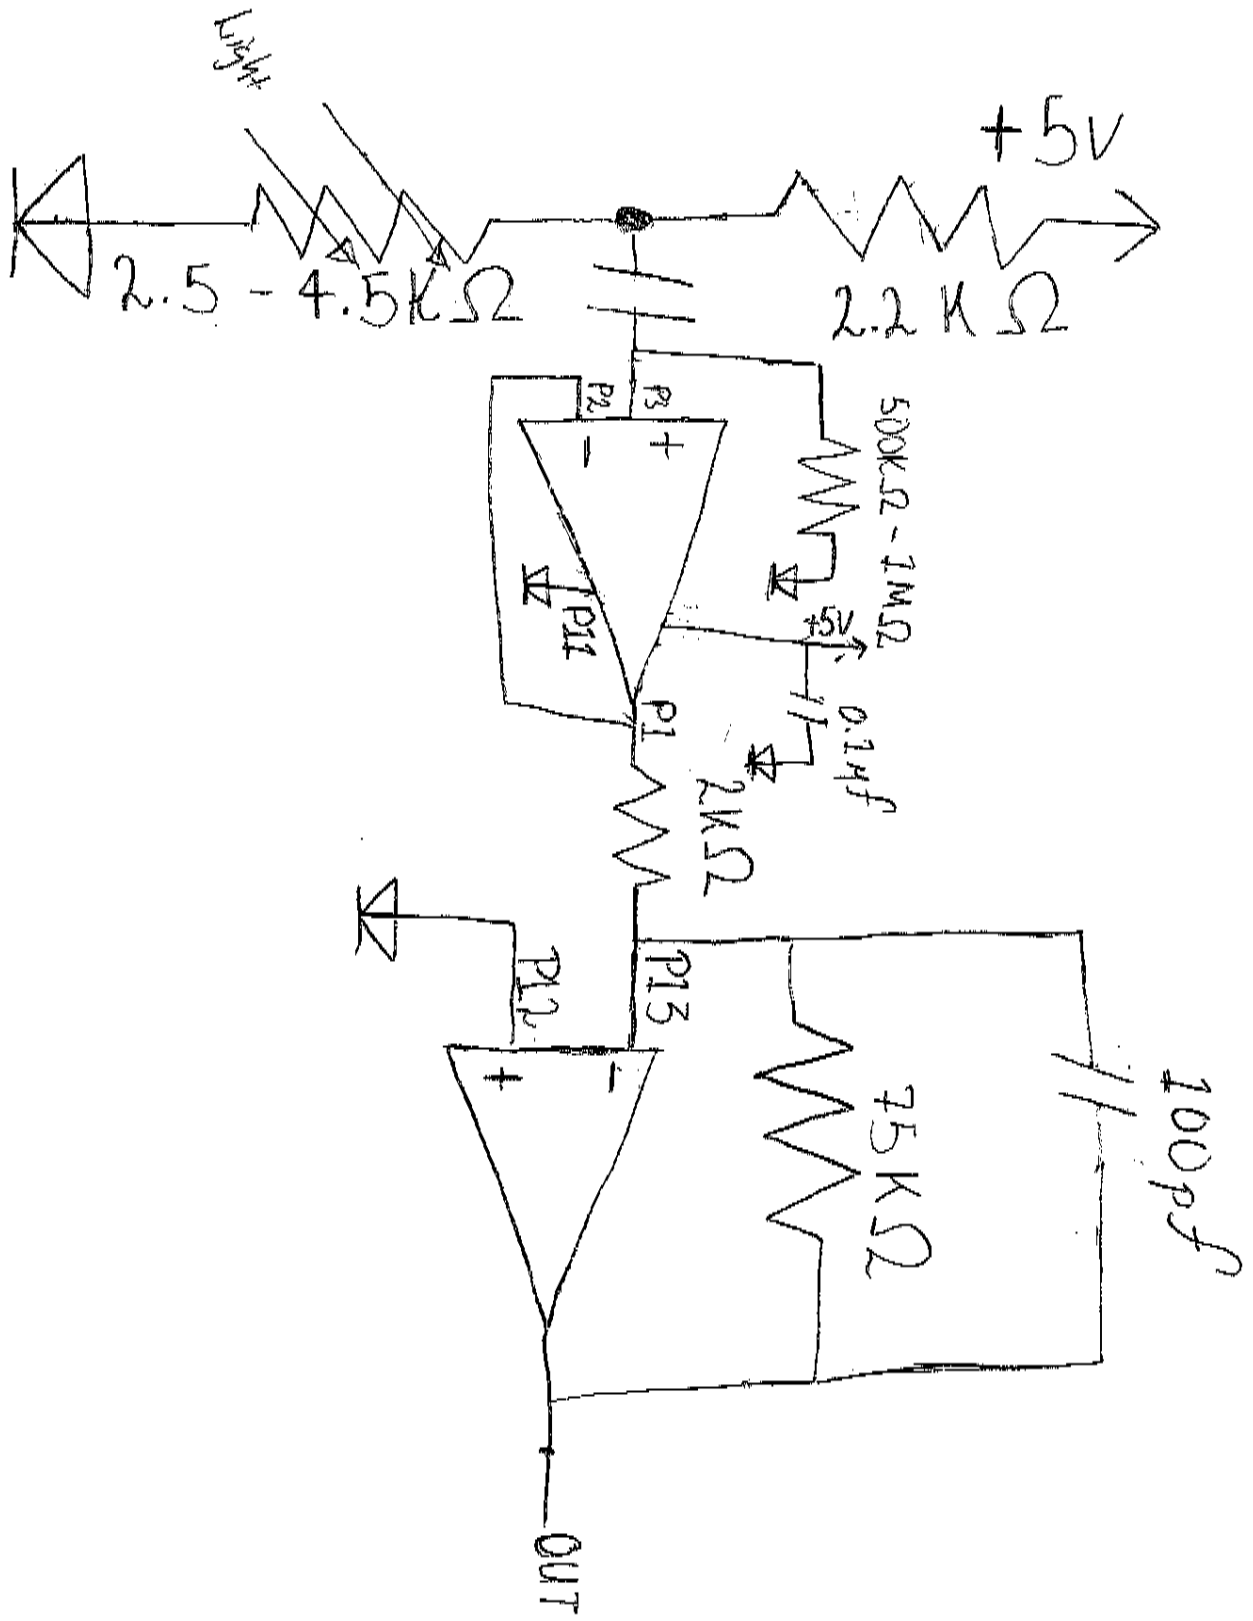 Light
+5v
2.5 - 4.5KΩ
2.2KΩ
P2
P3
-
+
500KΩ - 1MΩ
P11
+5V
P1
0.1µf
2KΩ
P12
P13
+
-
75KΩ
100pf
OUT